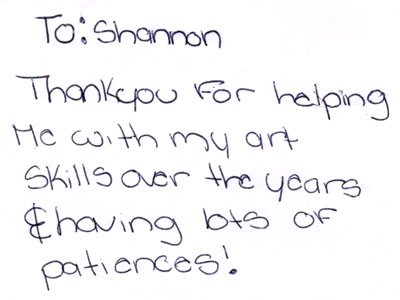 To: Shannon
Thankyou For helping
Me with my art
Skills over the years
& having lots of
patiences!